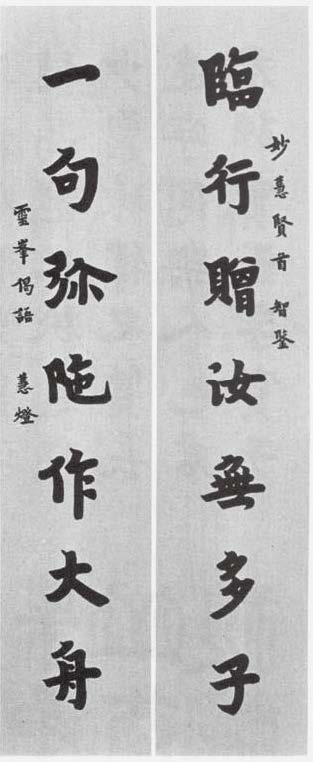 妙慧賢首智鑒
臨行贈汝無多子
一句弥陁作大舟
靈峯偈語 慧燈